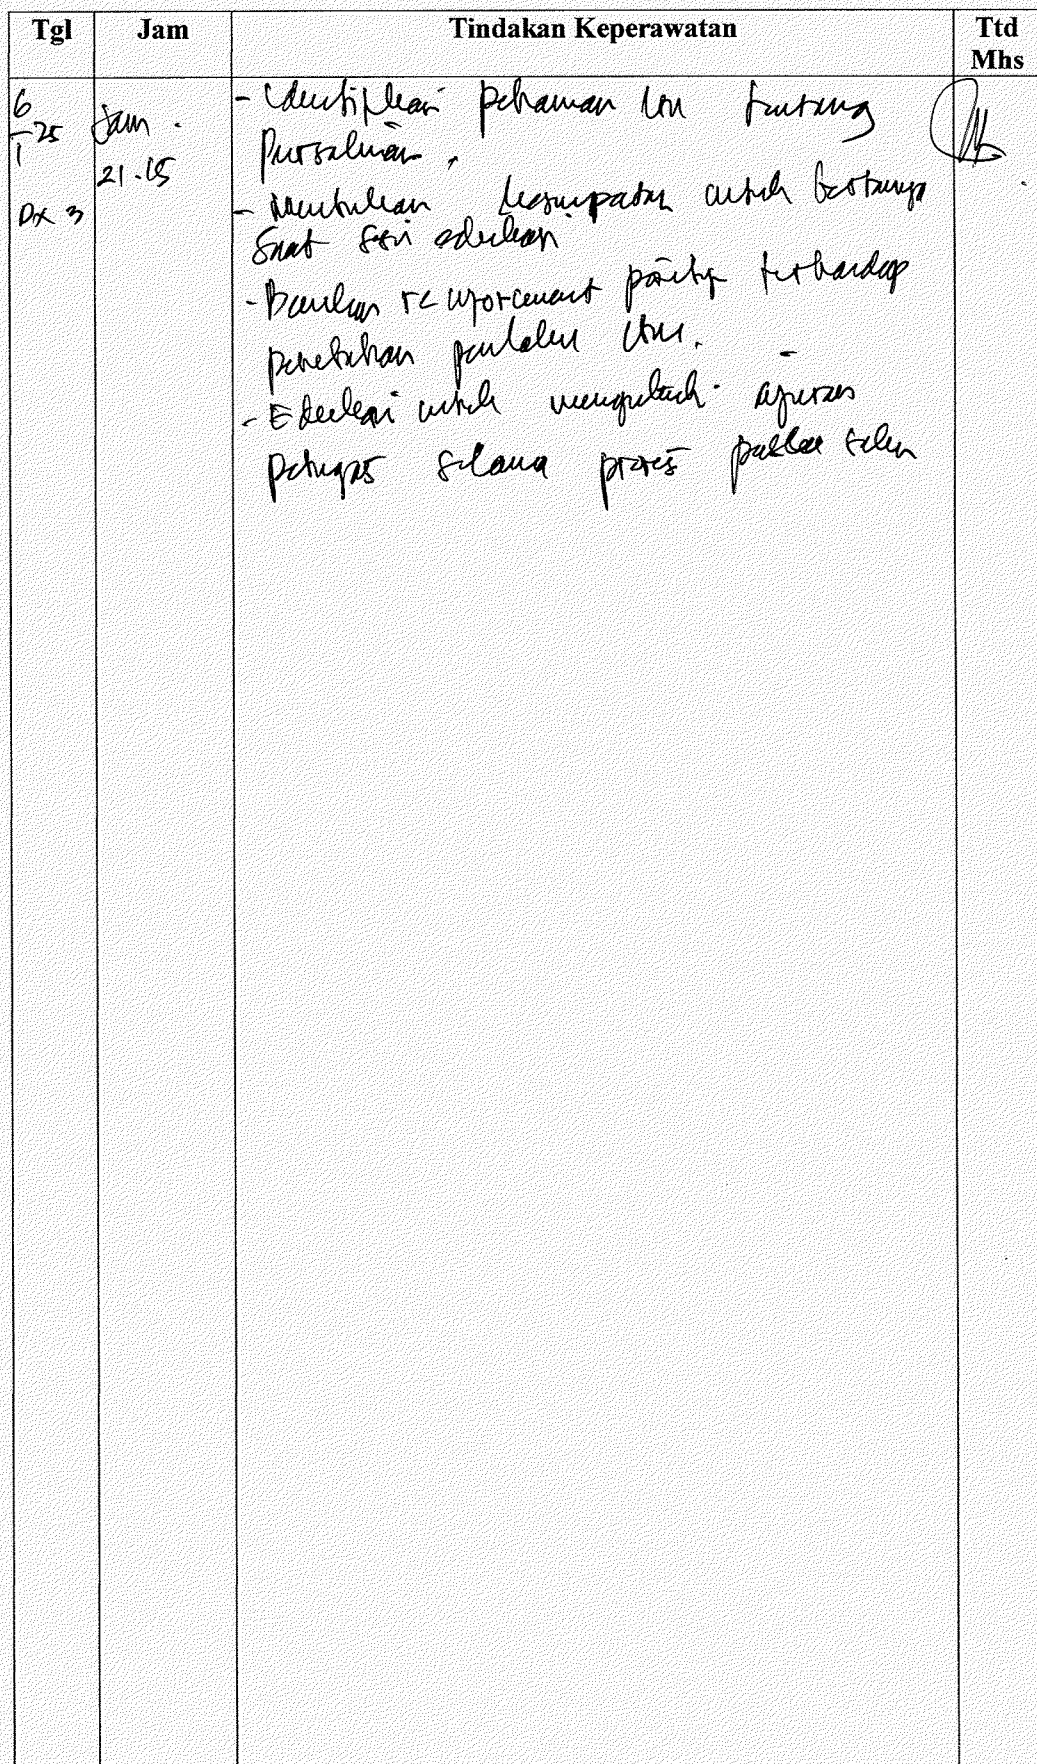 Tgl Jam Tindakan Keperawatan Ttd
Mhs
6/1 25 Jam . - Identifikasi pehaman ibu tentang
21.15 Persalinan .
Dx 3 - untuk bertanya
saat sesi edukasi
- Berikan reinforcement positif terhadap
perubahan perilaku ibu.
- Edukasi untuk anjuran
petugas selama proses